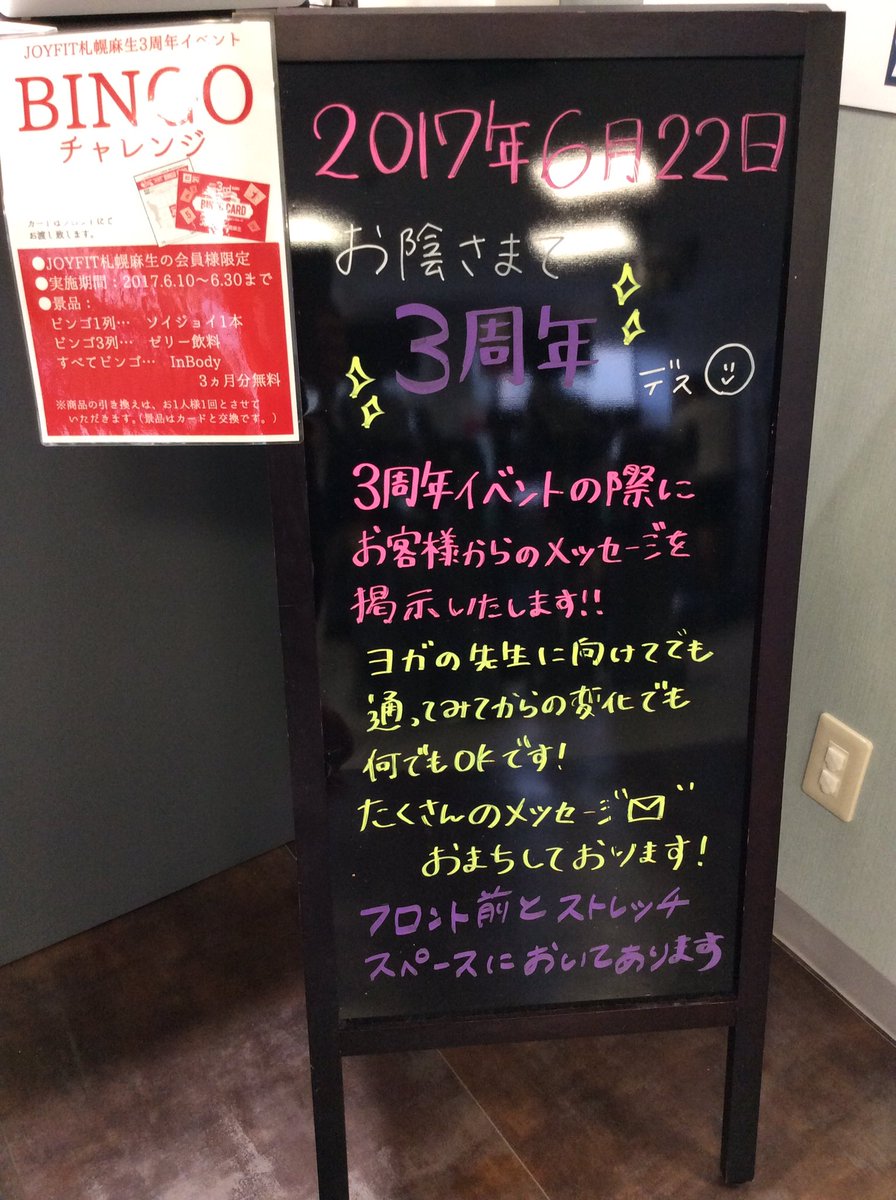 JOYFIT札幌麻生3周年イベント
BINGO
チャレンジ
お渡し致します。
●JOYFIT札幌麻生の会員様限定
●実施期間：2017.6.10～6.30まで
●景品：
ビンゴ1列… ソイジョイ1本
ビンゴ3列… ゼリー飲料
すべてビンゴ… InBody
3ヵ月分無料
※商品の引き換えは、お1人様1回とさせて
いただきます。（景品はカードと交換です。）
2017年6月22日
お陰さまで
3周年
デス
3周年イベントの際に
お客様からのメッセージを
掲示いたします!!
ヨガの先生に向けてでも
通ってみてからの変化でも
何でもOKです!
たくさんのメッセージ
おまちしております!
フロント前とストレッチ
スペースにおいてあります